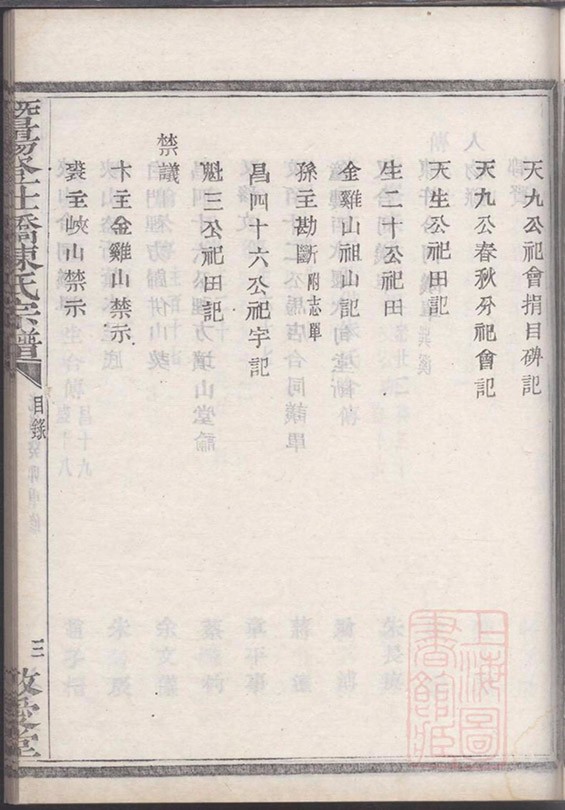 天九公祀會捐目碑記
天九公春秋分祀會記
天生公祀田記
生二十公祀田
金雞山祖山記
孫主勘斷附志單
昌四十六公祀宇記
魁三公祀田記
禁議
卞主金雞山禁示
裘主峽山禁示
橋陳氏宗譜
目錄
三
敬愛堂
上海圖書館藏